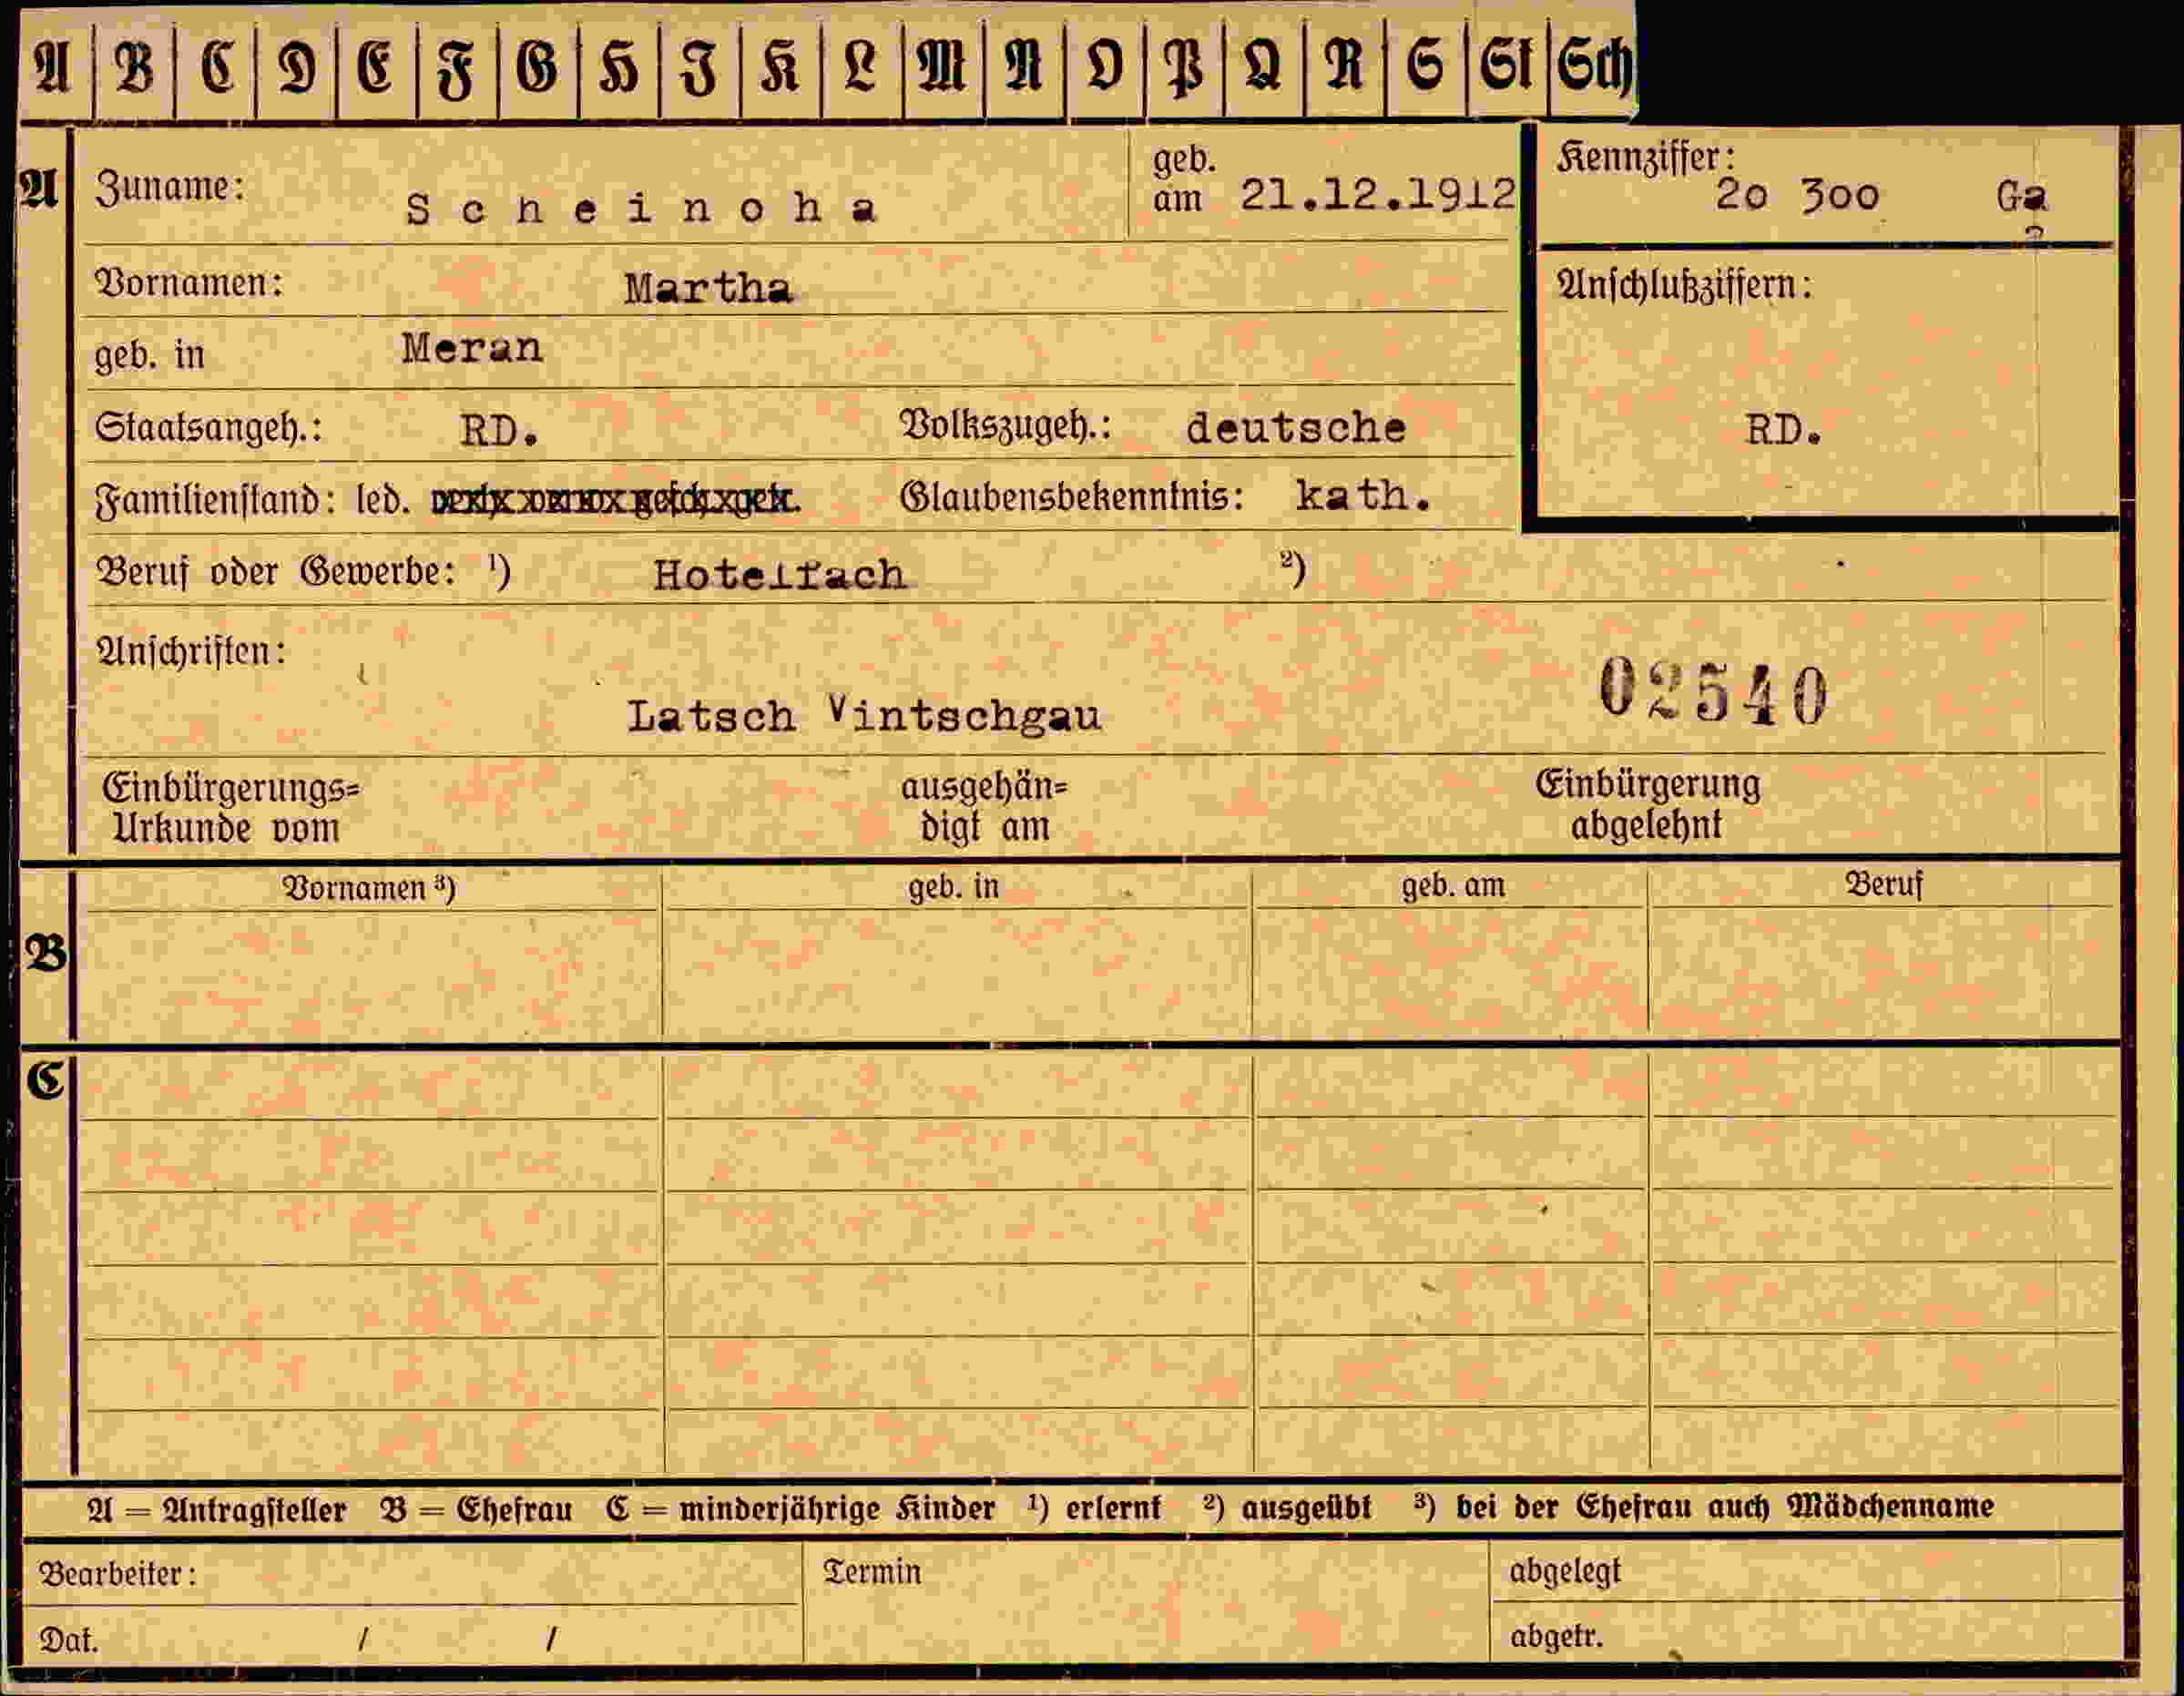 A B C D E F G H I K L M N O P Q R S St Sch
A Zuname: Scheinoha geb. am 21.12.1912 Kennziffer: 20 300 Ga
Vornamen: Martha Anschlußziffern:
geb. in Meran
Staatsangeh.: RD. Volkszugeh.: deutsche RD.
Familienstand: led. Glaubensbekenntnis: kath.
Beruf oder Gewerbe: ¹) Hotelfach ²)
Anschriften:
02540
Latsch Vintschgau
Einbürgerungs= ausgehän= Einbürgerung
Urkunde vom digt am abgelehnt
Vornamen ³) geb. in geb. am Beruf
B
C
A = Antragsteller B = Ehefrau C = minderjährige Kinder ¹) erlernt ²) ausgeübt ³) bei der Ehefrau auch Mädchenname
Bearbeiter: Termin abgelegt
Dat. / / abgetr.